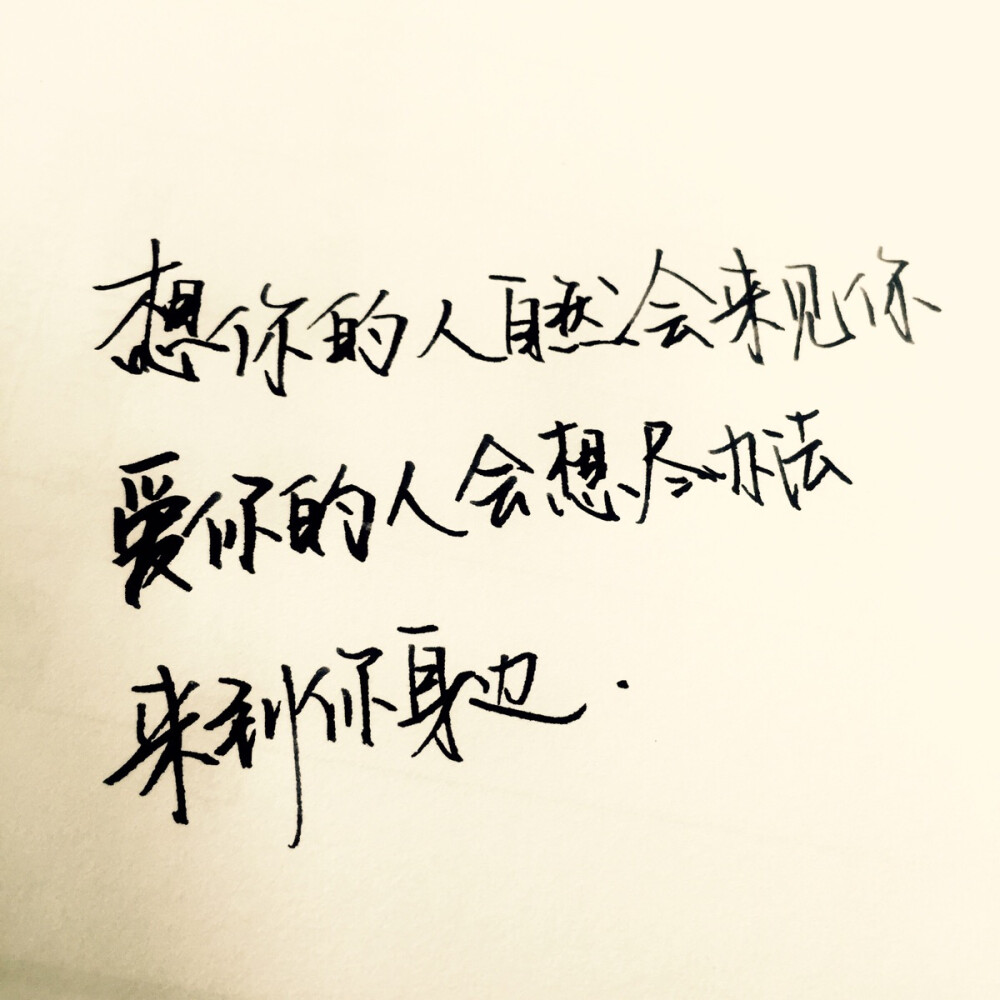 想你的人自然会来见你
爱你的人会想尽办法
来到你身边.